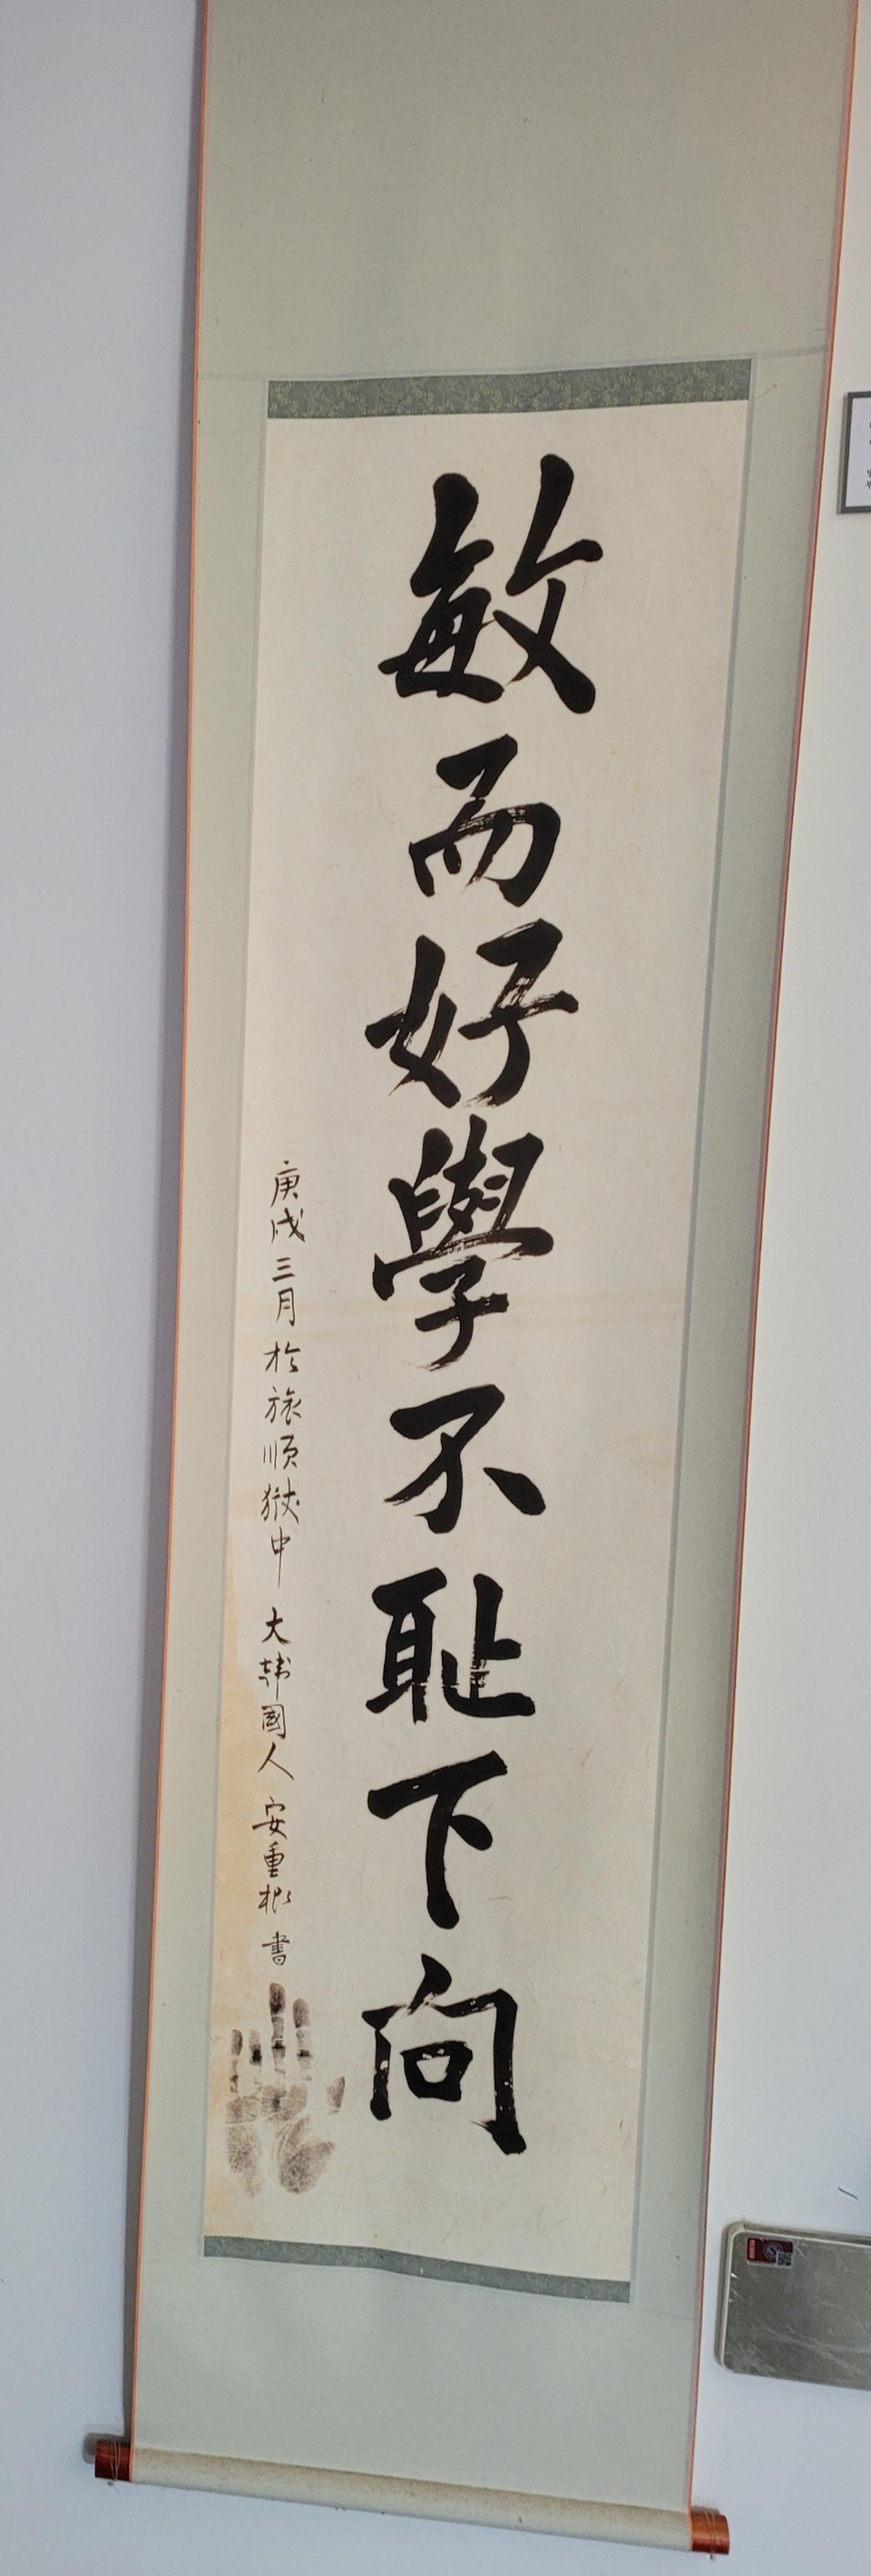 敏而好學不恥下向
庚戌三月於旅順獄中 大韓國人 安重根 書